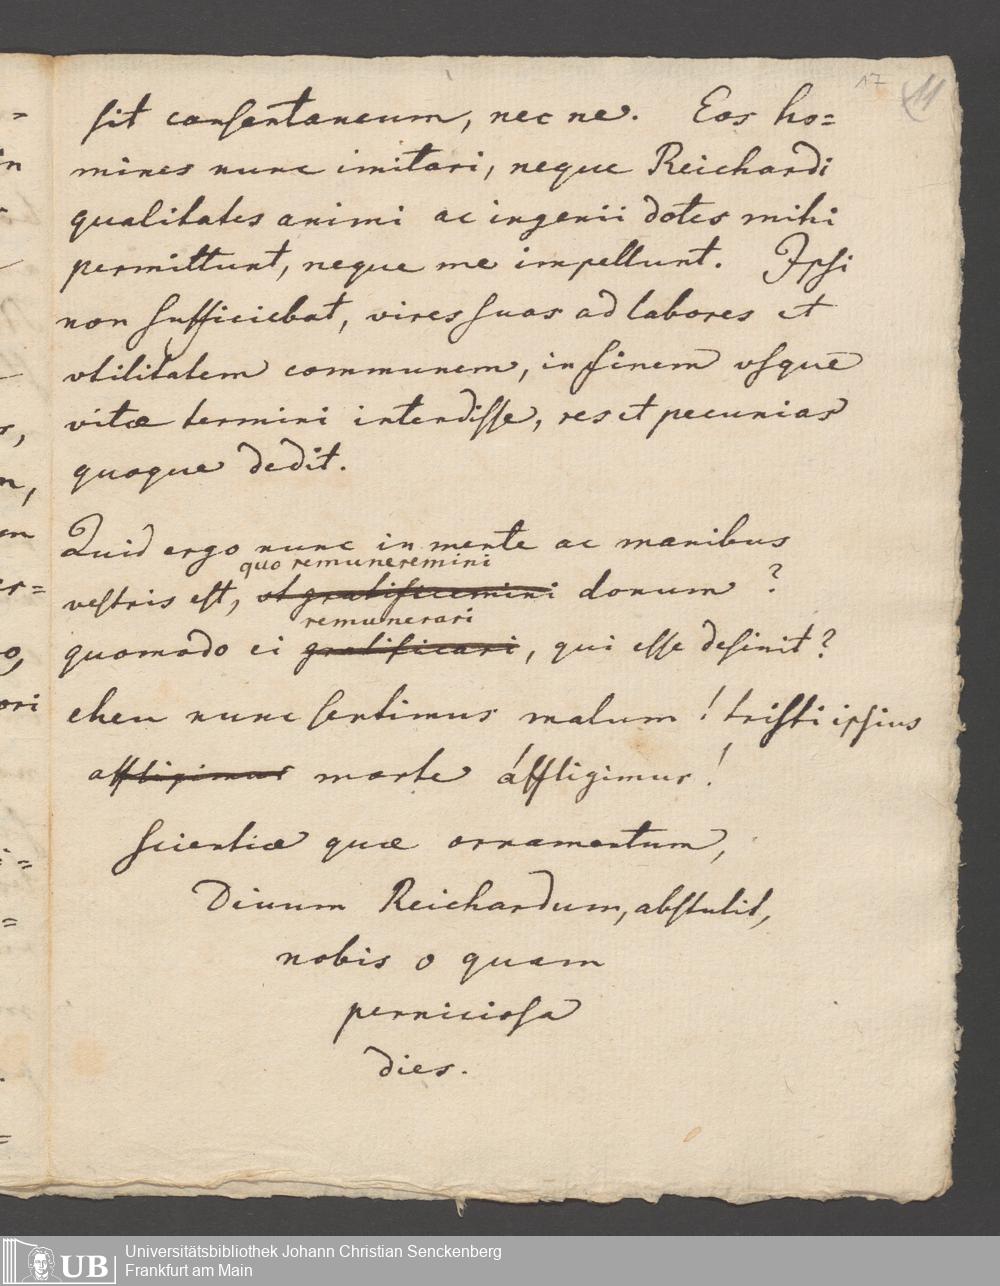 17 11
sit consentaneum, nec ne. Eos ho=
mines nunc imitari, neque Reichardi
qualitates animi ac ingenii dotes mihi
permittunt, neque me impellunt. Ipsi
non sufficiebat, vires suas ad labores et
vtilitatem communem, in finem vsque
vitæ termini intendisse, res et pecunias
quoque dedit.
Quid ergo nunc in mente ac manibus
quo remuneremini
vestris est, vt gratificemini donum?
remunerari
quomodo ei gratificari, qui esse desinit?
eheu nunc sentimus malum! tristi ipsius
affligimur morte affligimur!
scientiæ quæ ornamentum,
Diuum Reichardum, abstulit,
nobis o quam
perniciosa
dies.
UB
Universitätsbibliothek Johann Christian Senckenberg
Frankfurt am Main